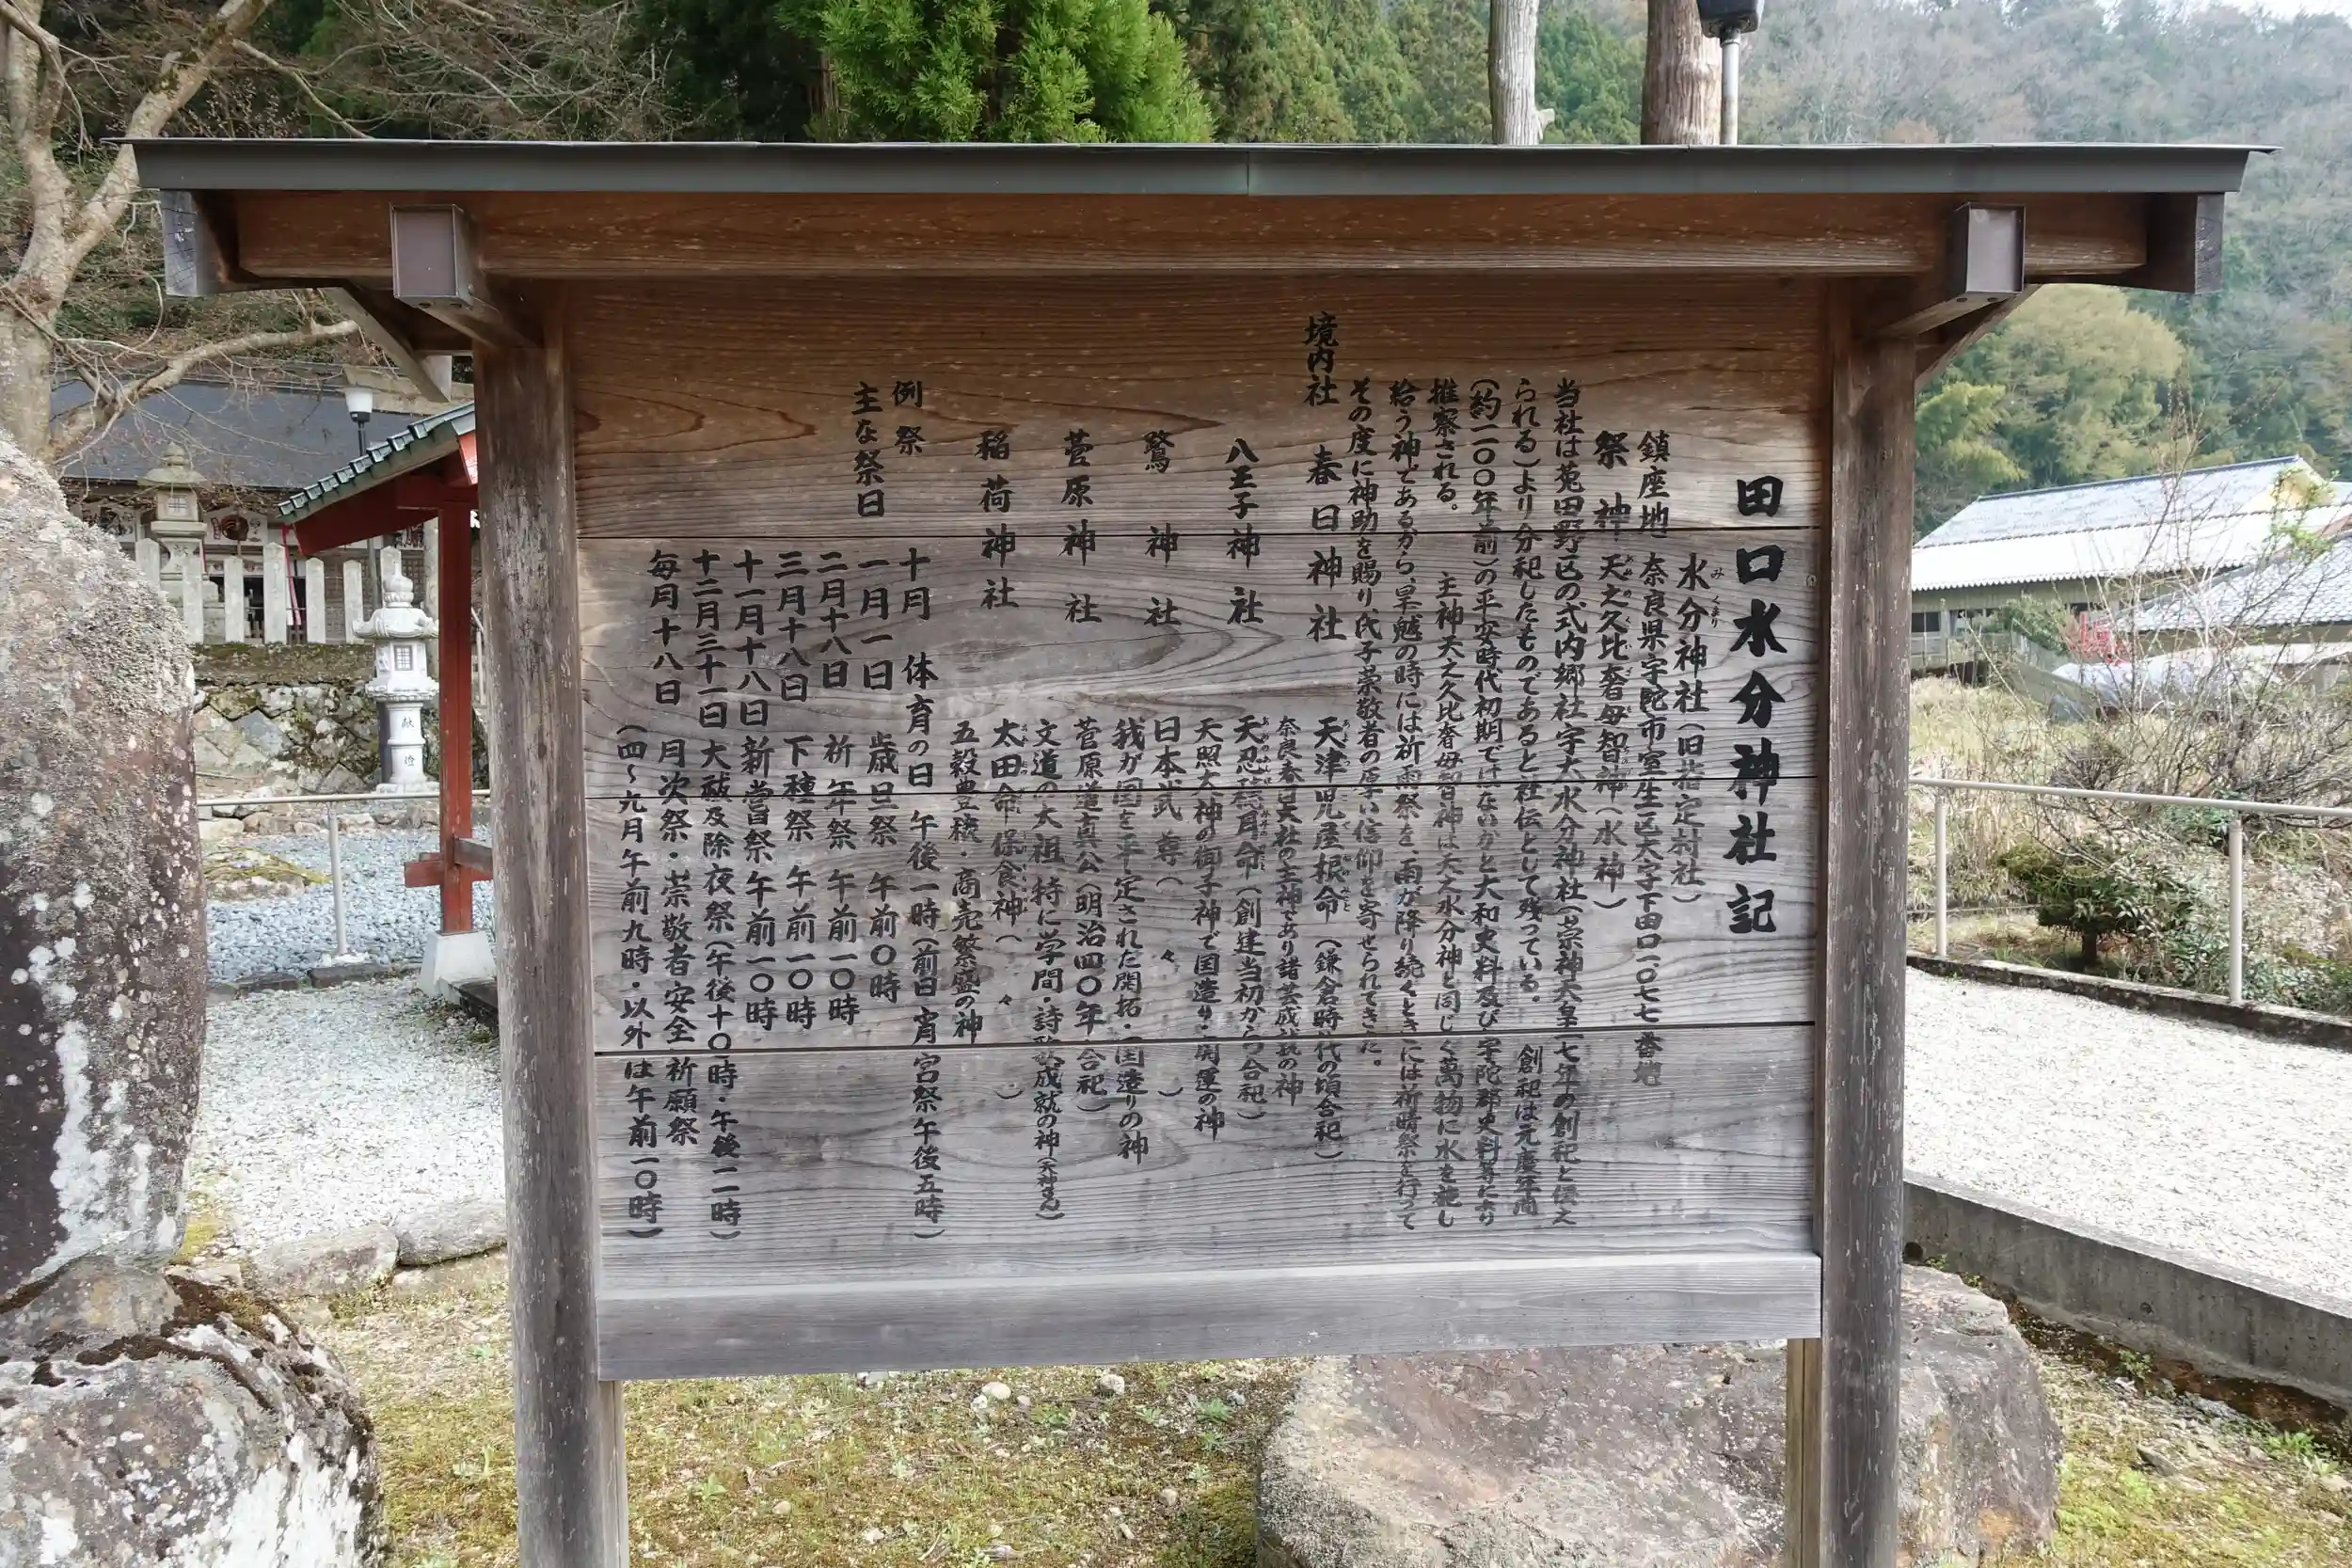 田口水分神社記
水分神社(旧指定村社)
みくまり
鎮座地 奈良県宇陀市室生区大字下田口一〇七七番地
祭神 天之久比奢母智神(水神)
当社は菟田野区の式内郷社宇太水分神社(崇神天皇七年の創祀と伝え
られる)より分祀したものであると社伝として残っている。 創祀は元慶年間
(約一一〇〇年前)の平安時代初期ではないかと大和史料及び宇陀郡史料等により
推察される。 主神天之久比奢母智神は天之水分神と同じく萬物に水を施し
給う神であるから、旱魃の時には祈雨祭を、雨が降り続くときには祈晴祭を行って
その度に神助を賜り氏子崇敬者の厚い信仰を寄せられてきた。
境内社 春日神社 天津児屋根命(鎌倉時代の頃合祀)
奈良春日大社の主神であり諸芸成就の神
八王子神社 天忍穂耳命(創建当初からの合祀)
天照大神の御子神で国造り・開運の神
鷲神社 日本武尊( 〃 )
我が国を平定された開拓・国造りの神
菅原神社 菅原道真公(明治四〇年合祀)
文道の大祖 特に学問・詩歌成就の神(天神さん)
稲荷神社 太田命・保食神( 〃 )
五穀豊穣・商売繁盛の神
例祭 十月 体育の日 午後一時(前日宵宮祭午後五時)
主な祭日 一月一日 歳旦祭 午前〇時
二月十八日 祈年祭 午前一〇時
三月十八日 下種祭 午前一〇時
十一月十八日 新嘗祭 午前一〇時
十二月三十一日 大祓及除夜祭(午後十〇時・午後一一時)
毎月十八日 月次祭・崇敬者安全祈願祭
(四〜九月午前九時・以外は午前一〇時)
献
燈